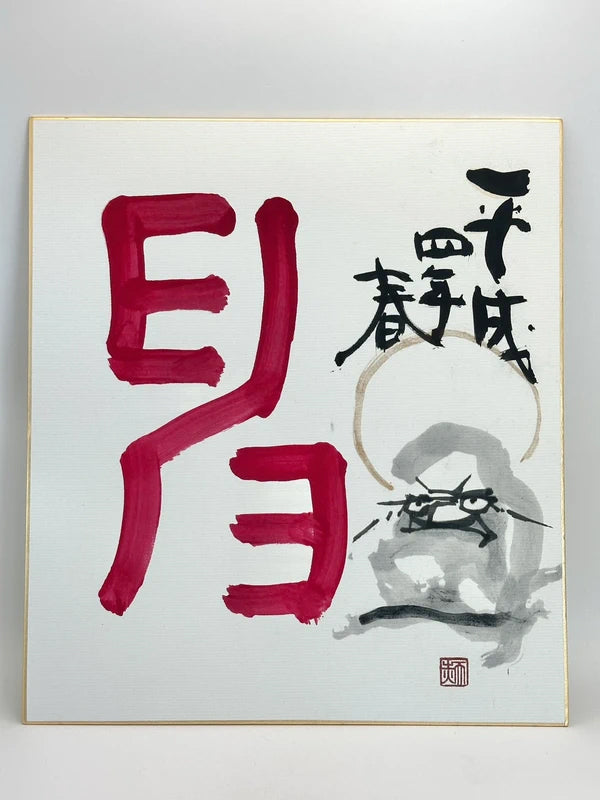 平成
四年
春
申